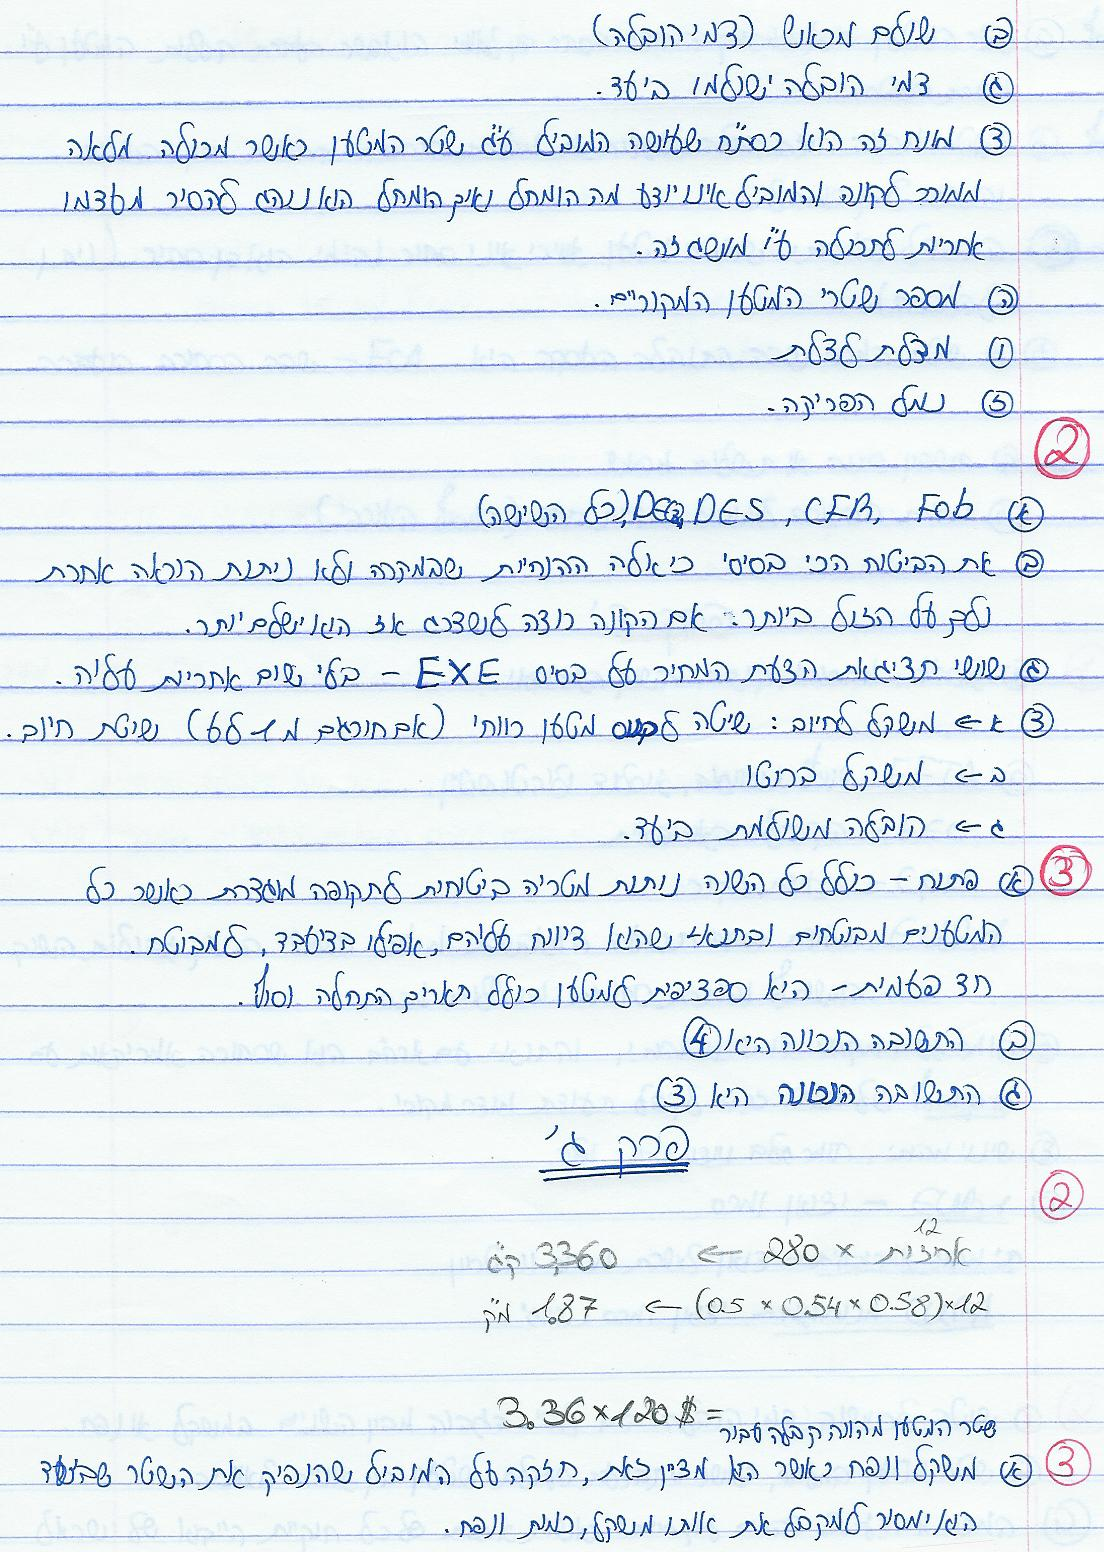 ב שולם מראש (דמי הובלה)
ג דמי הובלה ישולמו ביעד.
ד מונח זה הוא כסת"ח שעושה המוביל ע"ג שטר המטען כאשר מכולה מלאה
ממוכר לקונה והמוביל אינו יודע מה הומחל ואיך הומחל הוא נוהג להסיר מעצמו
אחריות לתכולה ע"י מושג זה.
ה מספר שטרי המטען המקוריים.
ו מדלת לדלת
ז נמל הפריקה.
2
א FOB ,CFR ,DES ,DEQ (כל השישה)
ב את הביטוח הכי בסיסי כי אלה ההנחיות שבמקרה ולא ניתנת הוראה אחרת
נלך על הזול ביותר. אם הקונה רוצה לשדרג אז הוא ישלם יותר.
ג שושי תציג את הצעת המחיר על בסיס EXE – בלי שום אחריות עליה.
ד א ← משקל לחיוב: שיטה מטען רווחי (אם חורגים מ 1 ל 6) שיטת חיוב.
ב ← משקל ברוטו
ג ← הובלה משולמת ביעד.
3 א פתוח – כולל כל השנה ניתנת מטריה ביטוחית לתקופה מוגדרת כאשר כל
המטענים מבוטחים ובתנאי שהוא דיווח עליהם, אפילו בדיעבד, למבוטח.
חד פעמית – היא ספציפית למטען כולל תאריך התחלה וסוף.
ב התשובה הנכונה היא 4
ג התשובה הנכונה היא 3
פרק ג'
2
12
אריזות × 280 → 3,360 ק"ג
(0.5 × 0.54 × 0.58)×12 → 1.87 מ"ק
3.36×120$=
שטר המטען מהווה קבלה עבור
3 א משקל ונפח כאשר הוא מציין זאת, חזקה על המוביל שהנפיק את השטר שביעד
הוא ימסור למקבל את אותו משקל, כמות ונפח.